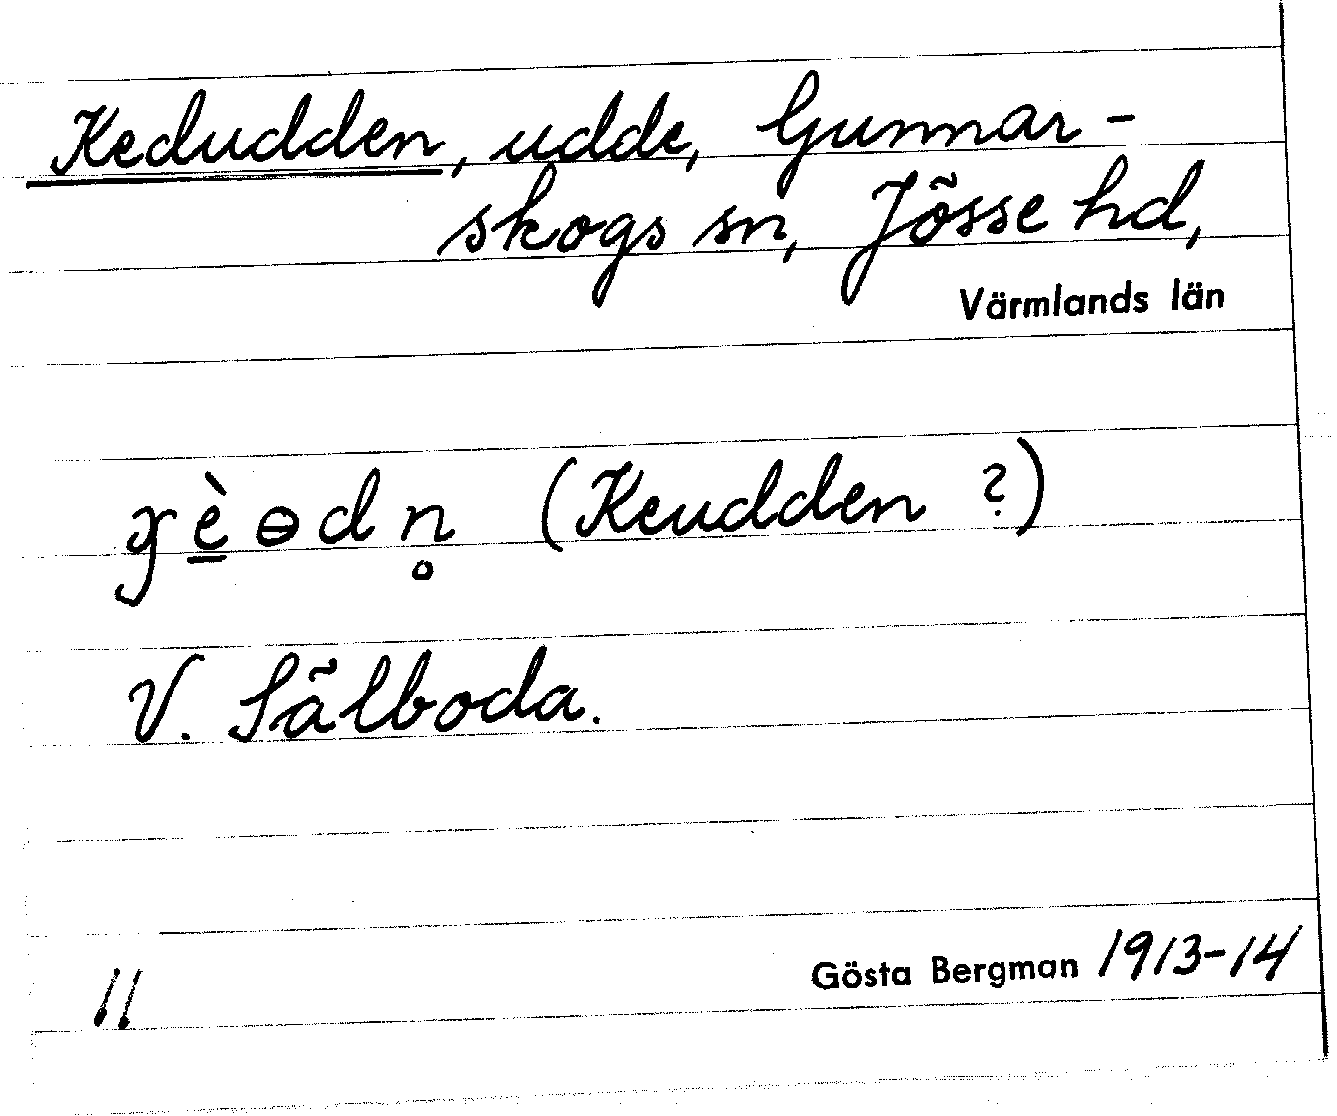 Kedudden, udde, Gunnar-
skogs sn, Jösse hd,
Värmlands län
ɣè̱ɵdn̥ (Keudden ?)
V. Sälboda.
11
Gösta Bergman 1913-14